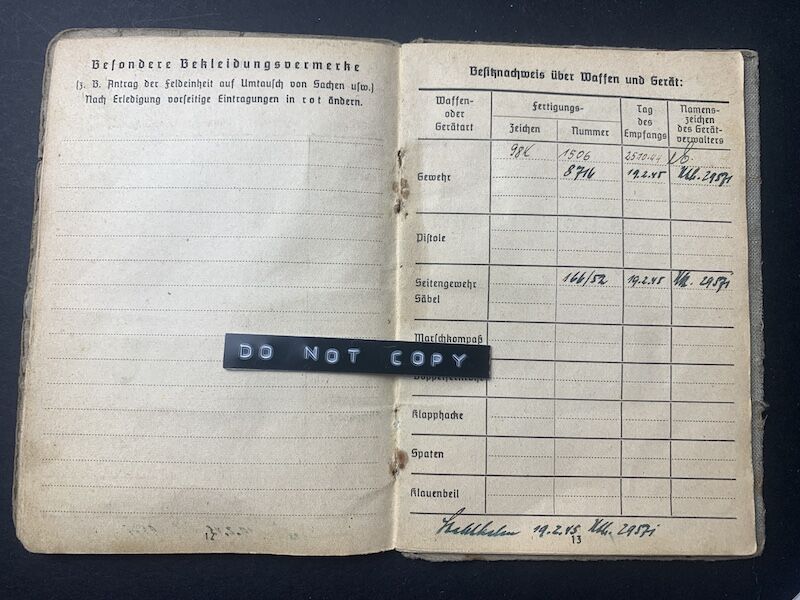 Besondere Bekleidungsvermerke
(z. B. Antrag der Feldeinheit auf Umtausch von Sachen usw.)
Nach Erledigung vorseitige Eintragungen in rot ändern.
12
Besitznachweis über Waffen und Gerät:
Waffen- oder Gerätart
Fertigungs-
Zeichen
Nummer
Tag des Empfangs
Namens- zeichen des Gerät- verwalters
Gewehr
98K 1506 25.10.44
8716 19.2.45
Pistole
Seitengewehr 166/52 19.2.45
Säbel
Marschkompaß
DO NOT COPY
Klapphacke
Spaten
Klauenbeil
Stahlhelm 19.2.45
13